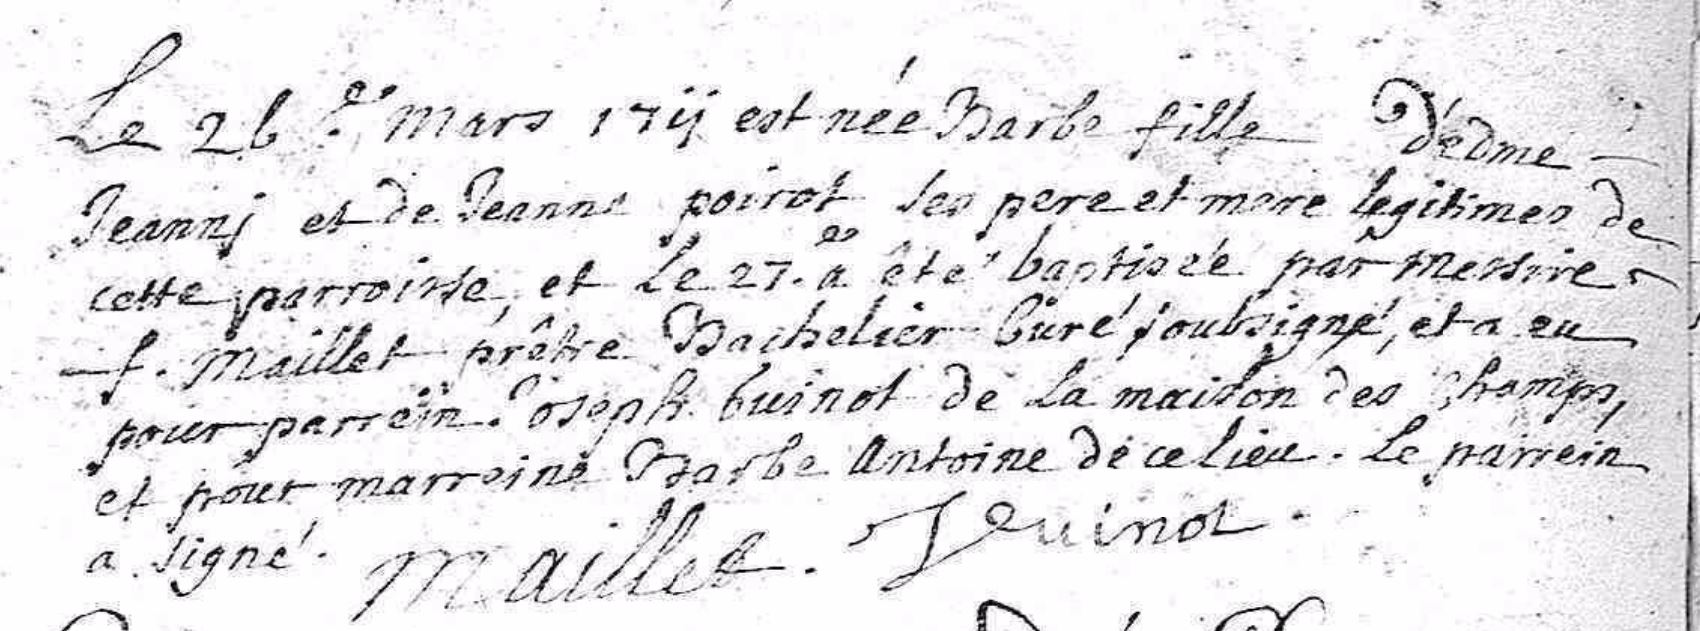 Le 26 e. mars 1711 est née Barbe fille d'édme
Jeannj et de Jeanne poirot ses pere et mere legitimes de
cette parroisse, et le 27. a été baptisée par Messire
f. Maillet prêtre Bachelier Curé soubsigné, et a eu
pour parrein Joseph Cuinot de la maison des champs,
et pour marreine Barbe Antoine de ce lieu. Le parrein
a signé. Maillet. J Cuinot.